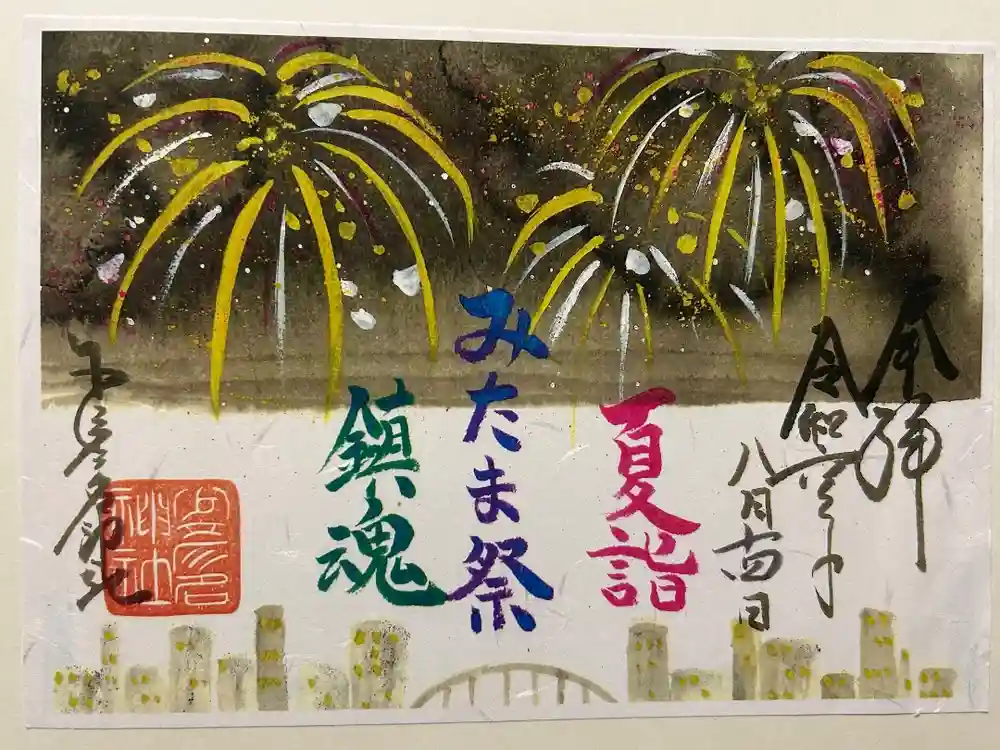 奉拝
令和
八月十四日
夏詣
みたま祭
鎮魂
神社